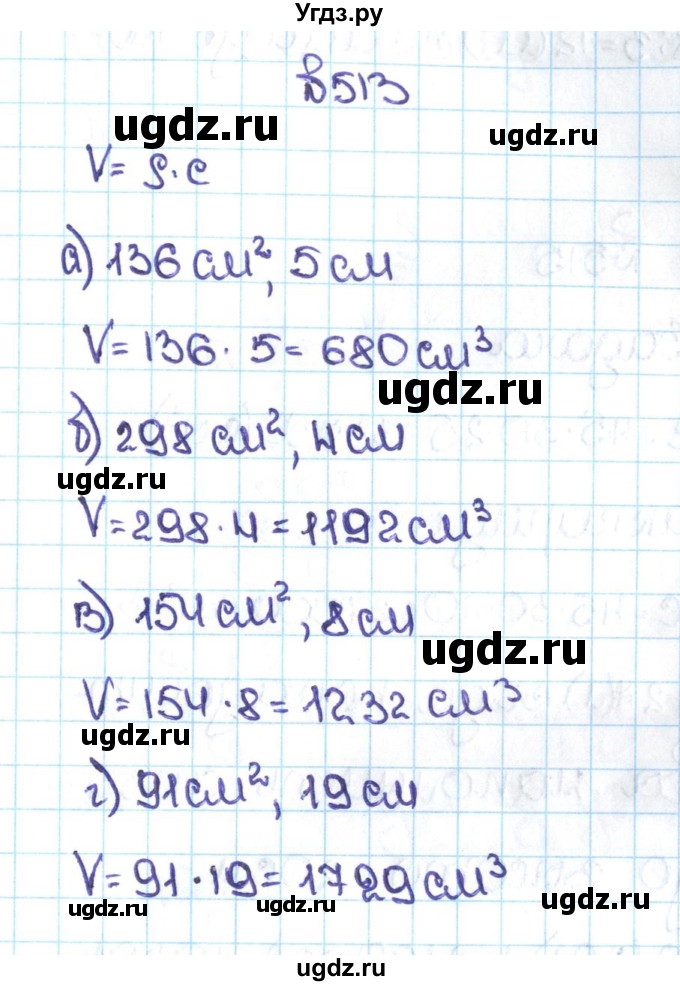 Угдз.ру
№513
ugdz.ru
ugdz.ru
V= S·c
а) 136 см², 5 см
V= 136 · 5 = 680 см³
ugdz.ru
б) 298 см², 4 см
ugdz.ru
V= 298 · 4 = 1192 см³
в) 154 см², 8 см
ugdz.ru
V= 154 · 8 = 1232 см³
ugdz.ru
г) 91 см², 19 см
V= 91 · 19 = 1729 см³
ugdz.ru
ugdz.ru
ugdz.ru
ugdz.ru